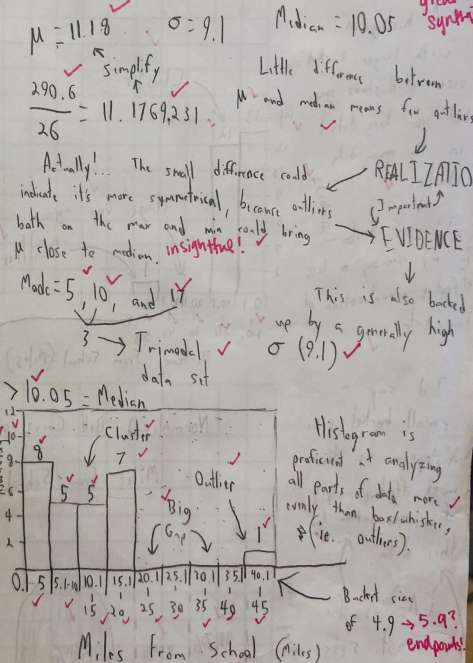 great
synth
μ = 11.18 σ = 9.1 Median = 10.05
simplify
290.6
26
= 11.1769,231
Little difference between
μ and median means few outliers
Actually!... The small difference could
indicate it's more symmetrical, because outliers
both on the max and min could bring
μ close to median. insightful!
REALIZATIO
Important
EVIDENCE
This is also backed
up by a generally high
σ (9.1)
Mode = 5, 10, and 17
3 → Trimodal
data set
> 10.05 = Median
Cluster
12
10
8
6
4
2
8
5
5
7
Big
Gap
Outlier
1
0.1-5 5.1-10 10.1 15.1 20.1 25.1 30.1 35.1 40.1
15 20 25 30 35 40 45
Miles from School (Miles)
Histogram is
proficient at analyzing
all parts of data more
evenly than box/whisker,
(ie. outliers).
Bucket size
of 4.9 → 5.9?
endpoints!